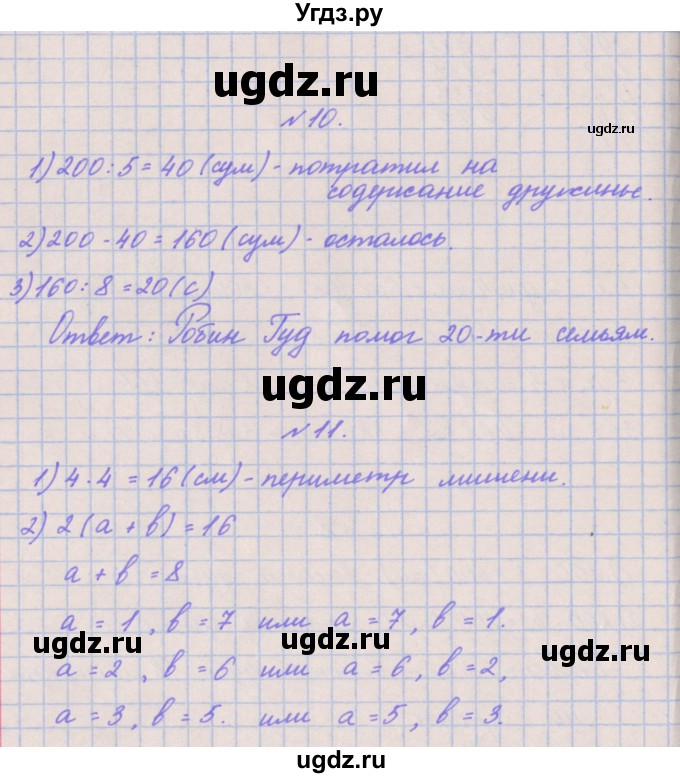 Угдз.ру
ugdz.ru
№10.
ugdz.ru
1) 200 : 5 = 40 (сум) - потратил на
содержание дружины.
2) 200 - 40 = 160 (сум) - осталось.
3) 160 : 8 = 20 (с)
Ответ: Робин Гуд помог 20-ти семьям.
ugdz.ru
№11.
1) 4 · 4 = 16 (см) - периметр мишени.
2) 2(a + b) = 16
a + b = 8
a = 1, b = 7 или a = 7, b = 1.
ugdz.ru ugdz.ru ugdz.ru
a = 2, b = 6 или a = 6, b = 2,
a = 3, b = 5. или a = 5, b = 3.
ugdz.ru